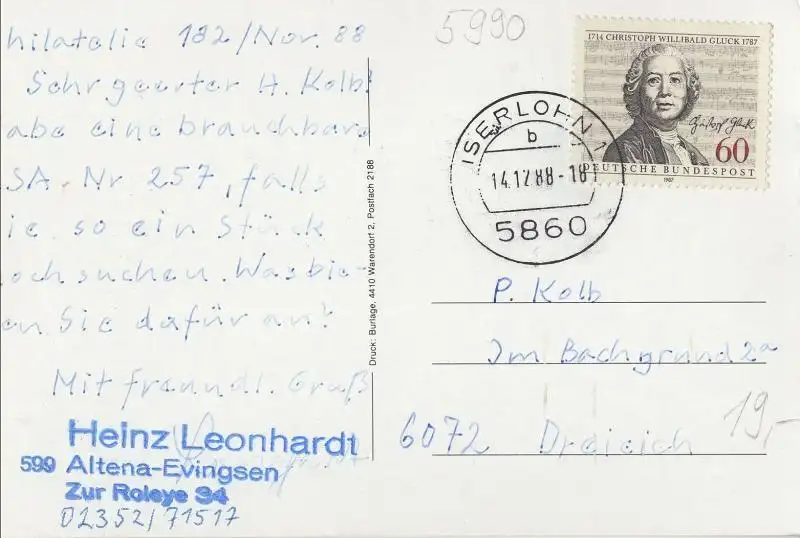 hilatelie 182/Nov. 88
Sehr geerter H. Kolb!
abe eine brauchbare
SA. Nr 257, falls
ie so ein Stück
och suchen. Was bie-
en Sie dafür an?
Mit freundl. Gruß
Heinz Leonhardt
599 Altena-Evingsen
Zur Roleye 34
02352/71517
Druck: Burlage, 4410 Warendorf 2, Postfach 2188
5990
1714 CHRISTOPH WILLIBALD GLUCK 1787
Christoph Gluck
60
DEUTSCHE BUNDESPOST
1987
ISERLOHN 1
b
14.12.88-18
5860
P. Kolb
Im Bachgrund 2a
6072 Dreieich
19,-